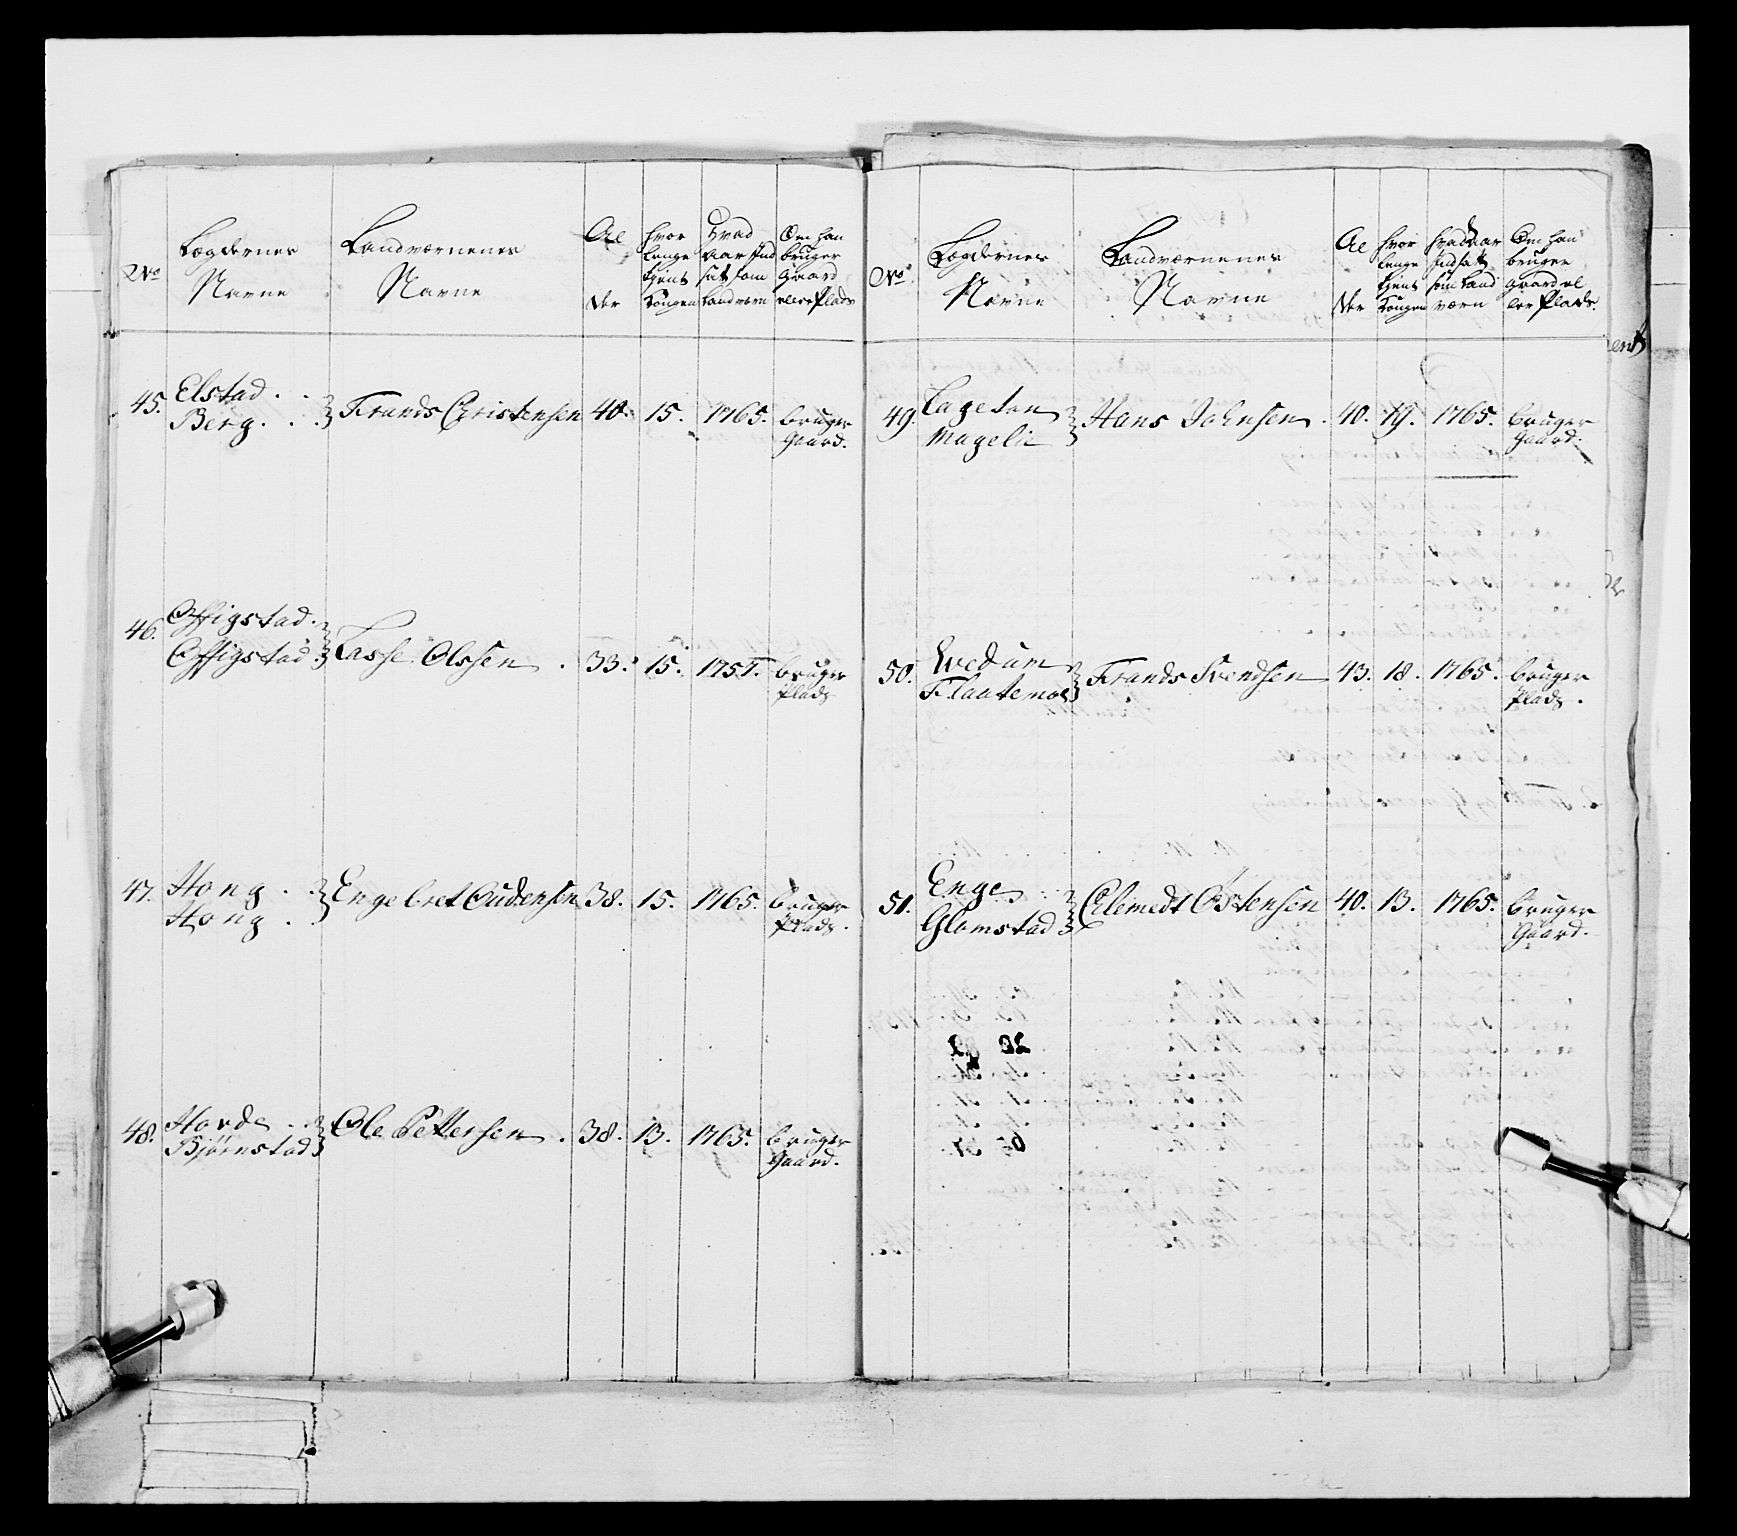 No
Lægdernes
Navne
Landværnenes
Navne
Al
der
hvor
længe
tjent
Kongen
Hvad
Aar Ind
sat som
Landværn
Om han
bruger
Gaard
eller Plads
45. Elstad . . Berg. . . Frands Christensen 40. 15. 1765. bruger
Gaard.
46. Offigstad. Offigstad Lasse Olssen . 33. 15. 1757. bruger
Plads
47. Hong . . Hong . Engebret Gudensen 38. 15. 1765. bruger
Plads.
48. Hovde . . Bjørnstad Ole Pettersen . 38. 13. 1765. bruger
Gaard.
No
Lægdernes
Navne
Landværnenes
Navne
Al
der
hvor
længe
tjent
Kongen
hvad Aar
Indsat
som Land
værn
Om han
bruger
Gaard el
ler Plads.
49. Lageton Magelie Hans Johnsen . 40. 19. 1765. bruger
Gaard.
50. Wedum Flaatemoe Frands Svendsen 43. 18. 1765. bruger
Plads.
51. Enge . . Glomstad Clemedt Østensen 40. 13. 1765. bruger
Gaard.